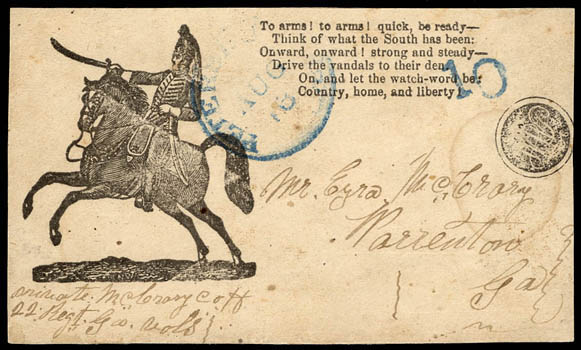 To arms! to arms! quick, be ready—
Think of what the South has been:
Onward, onward! strong and steady—
Drive the vandals to their den,
On, and let the watch-word be:
Country, home, and liberty!
10
AUG
Mr. Ezra McCrory
Warrenton
Ga
private McCrory Co H
22 Regt Ga vols